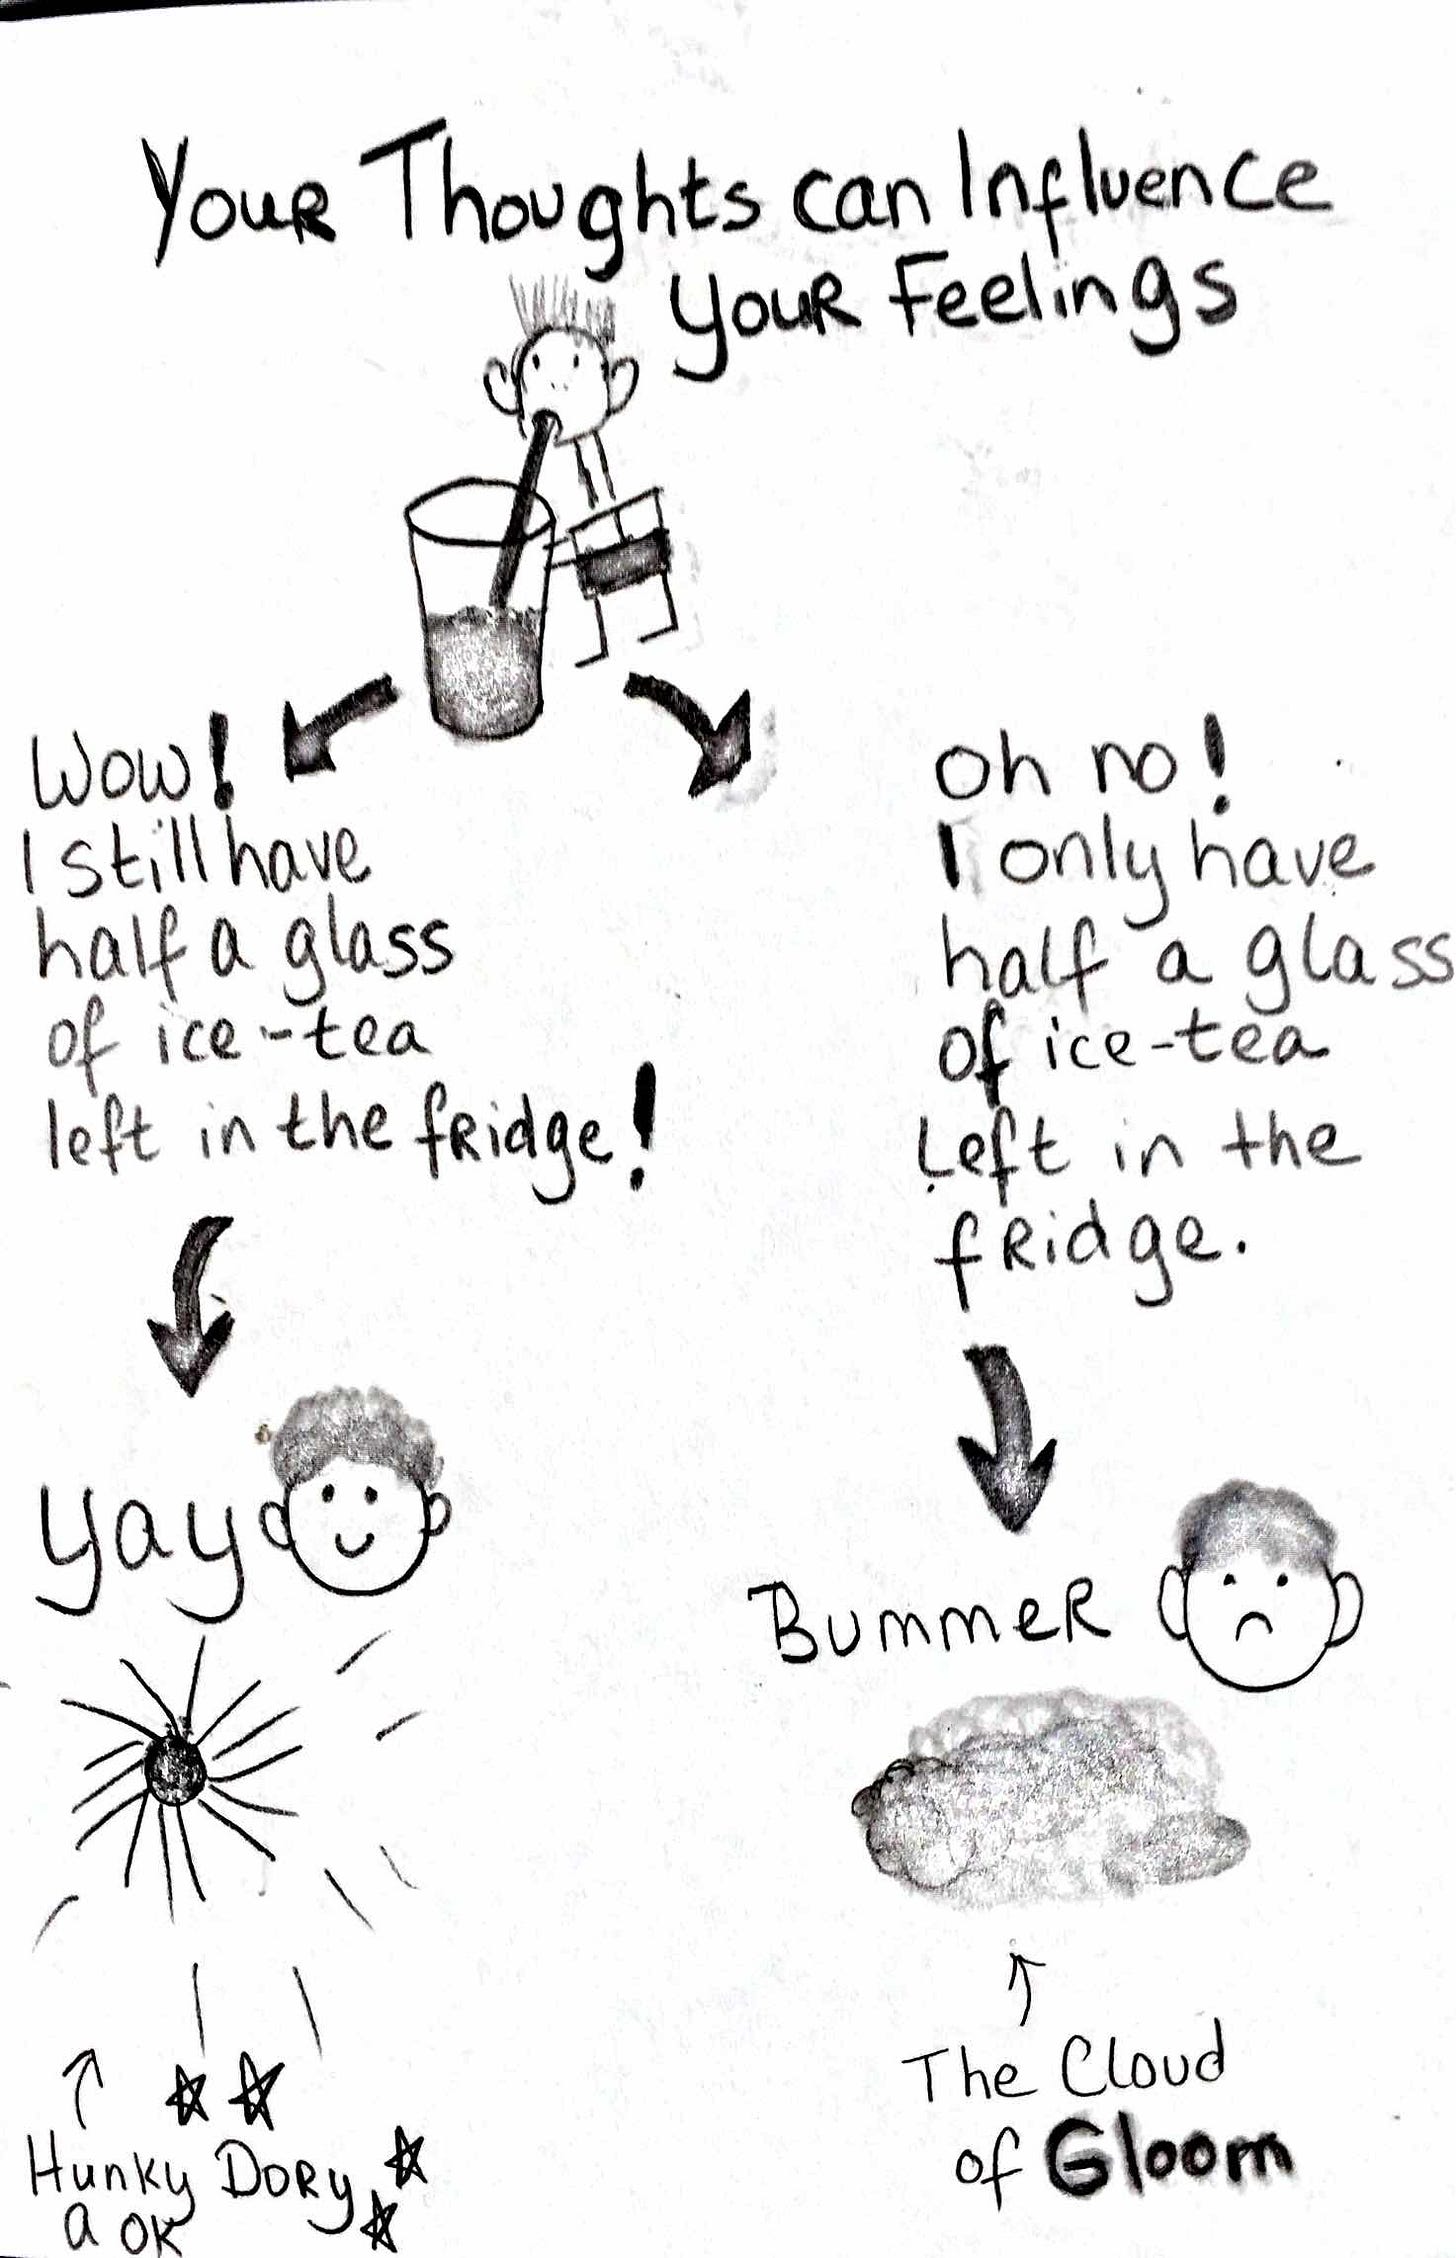 Your Thoughts can Influence
your Feelings
Wow!
I still have
half a glass
of ice-tea
left in the fridge!
yay
Hunky Dory
a OK
Oh no!
I only have
half a glass
of ice-tea
Left in the
fridge.
Bummer
The Cloud
of Gloom